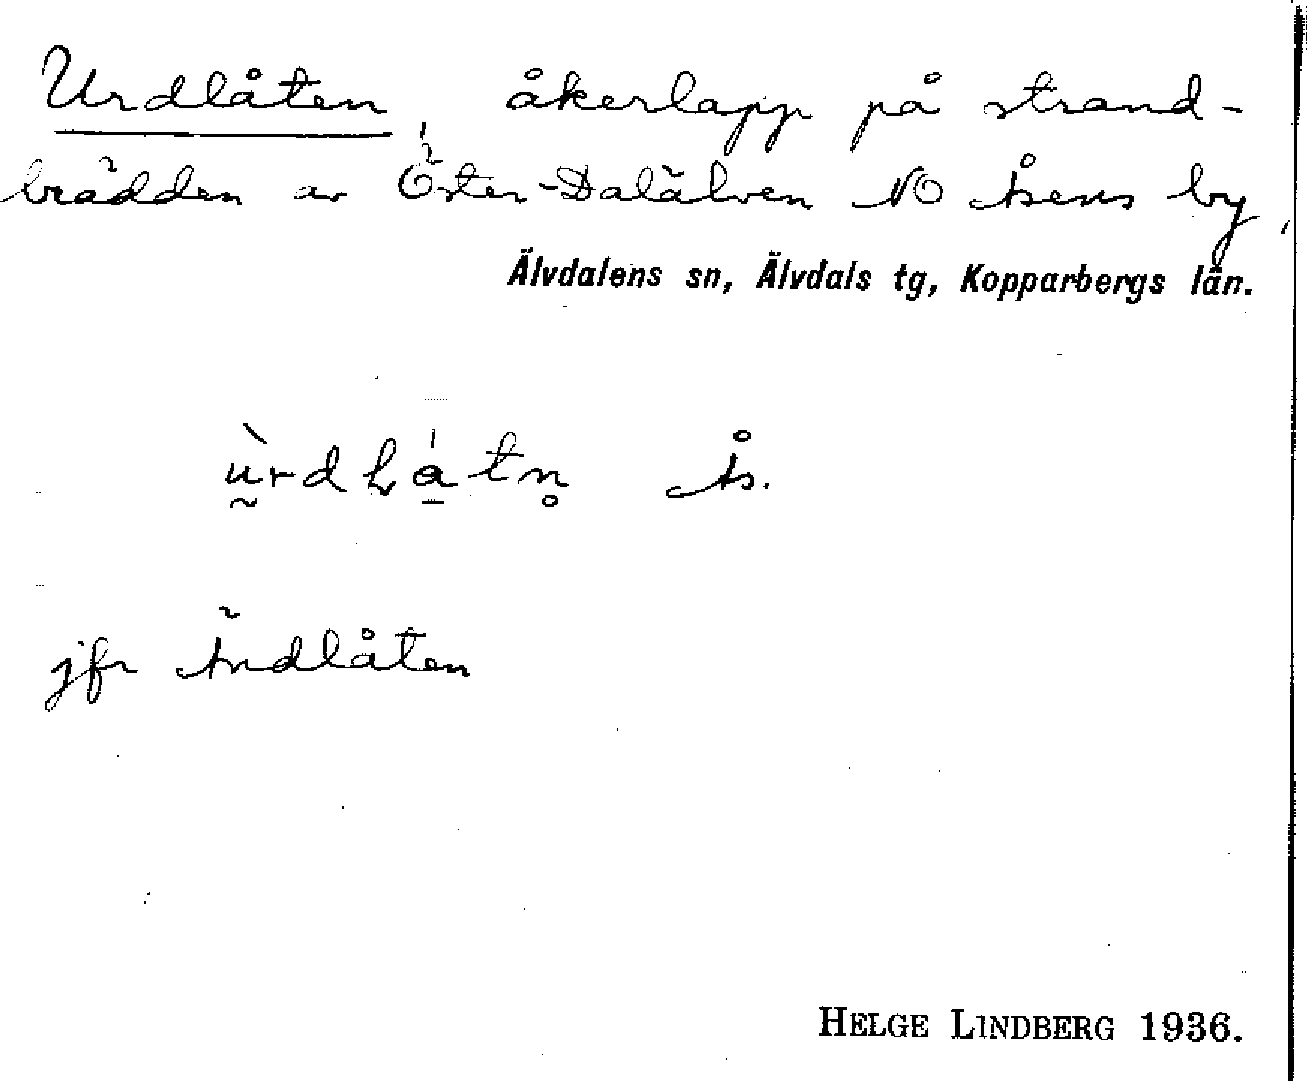 Urdlåten, åkerlapp på strand-
brädden av Öster-Dalälven NO Åsens by,
Älvdalens sn, Älvdals tg, Kopparbergs län.
ṵ̀rdL
á̱tn̥ Ås.
jfr Ändlåten
HELGE LINDBERG 1936.